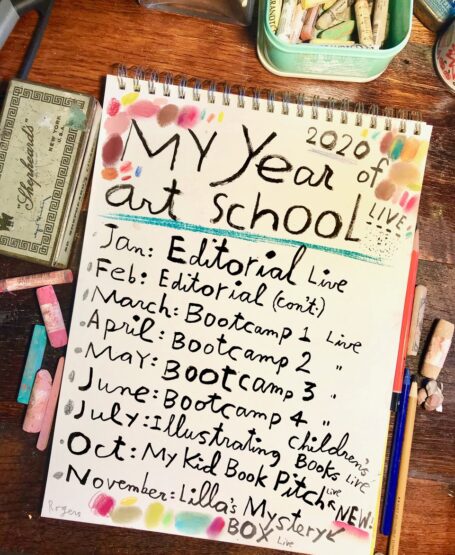 REMBRANDT
Shepherds'
NEW YORK
U.S.A.
2020
MY Year of
art school
LIVE!
Jan: Editorial Live
Feb: Editorial (con't.)
March: Bootcamp 1 Live
April: Bootcamp 2 "
May: Bootcamp 3 "
June: Bootcamp 4 "
July: Illustrating Children's
Books Live
Oct: My Kid Book Pitch Live
NEW!
November: Lilla's Mystery
BOX Live
Rogers